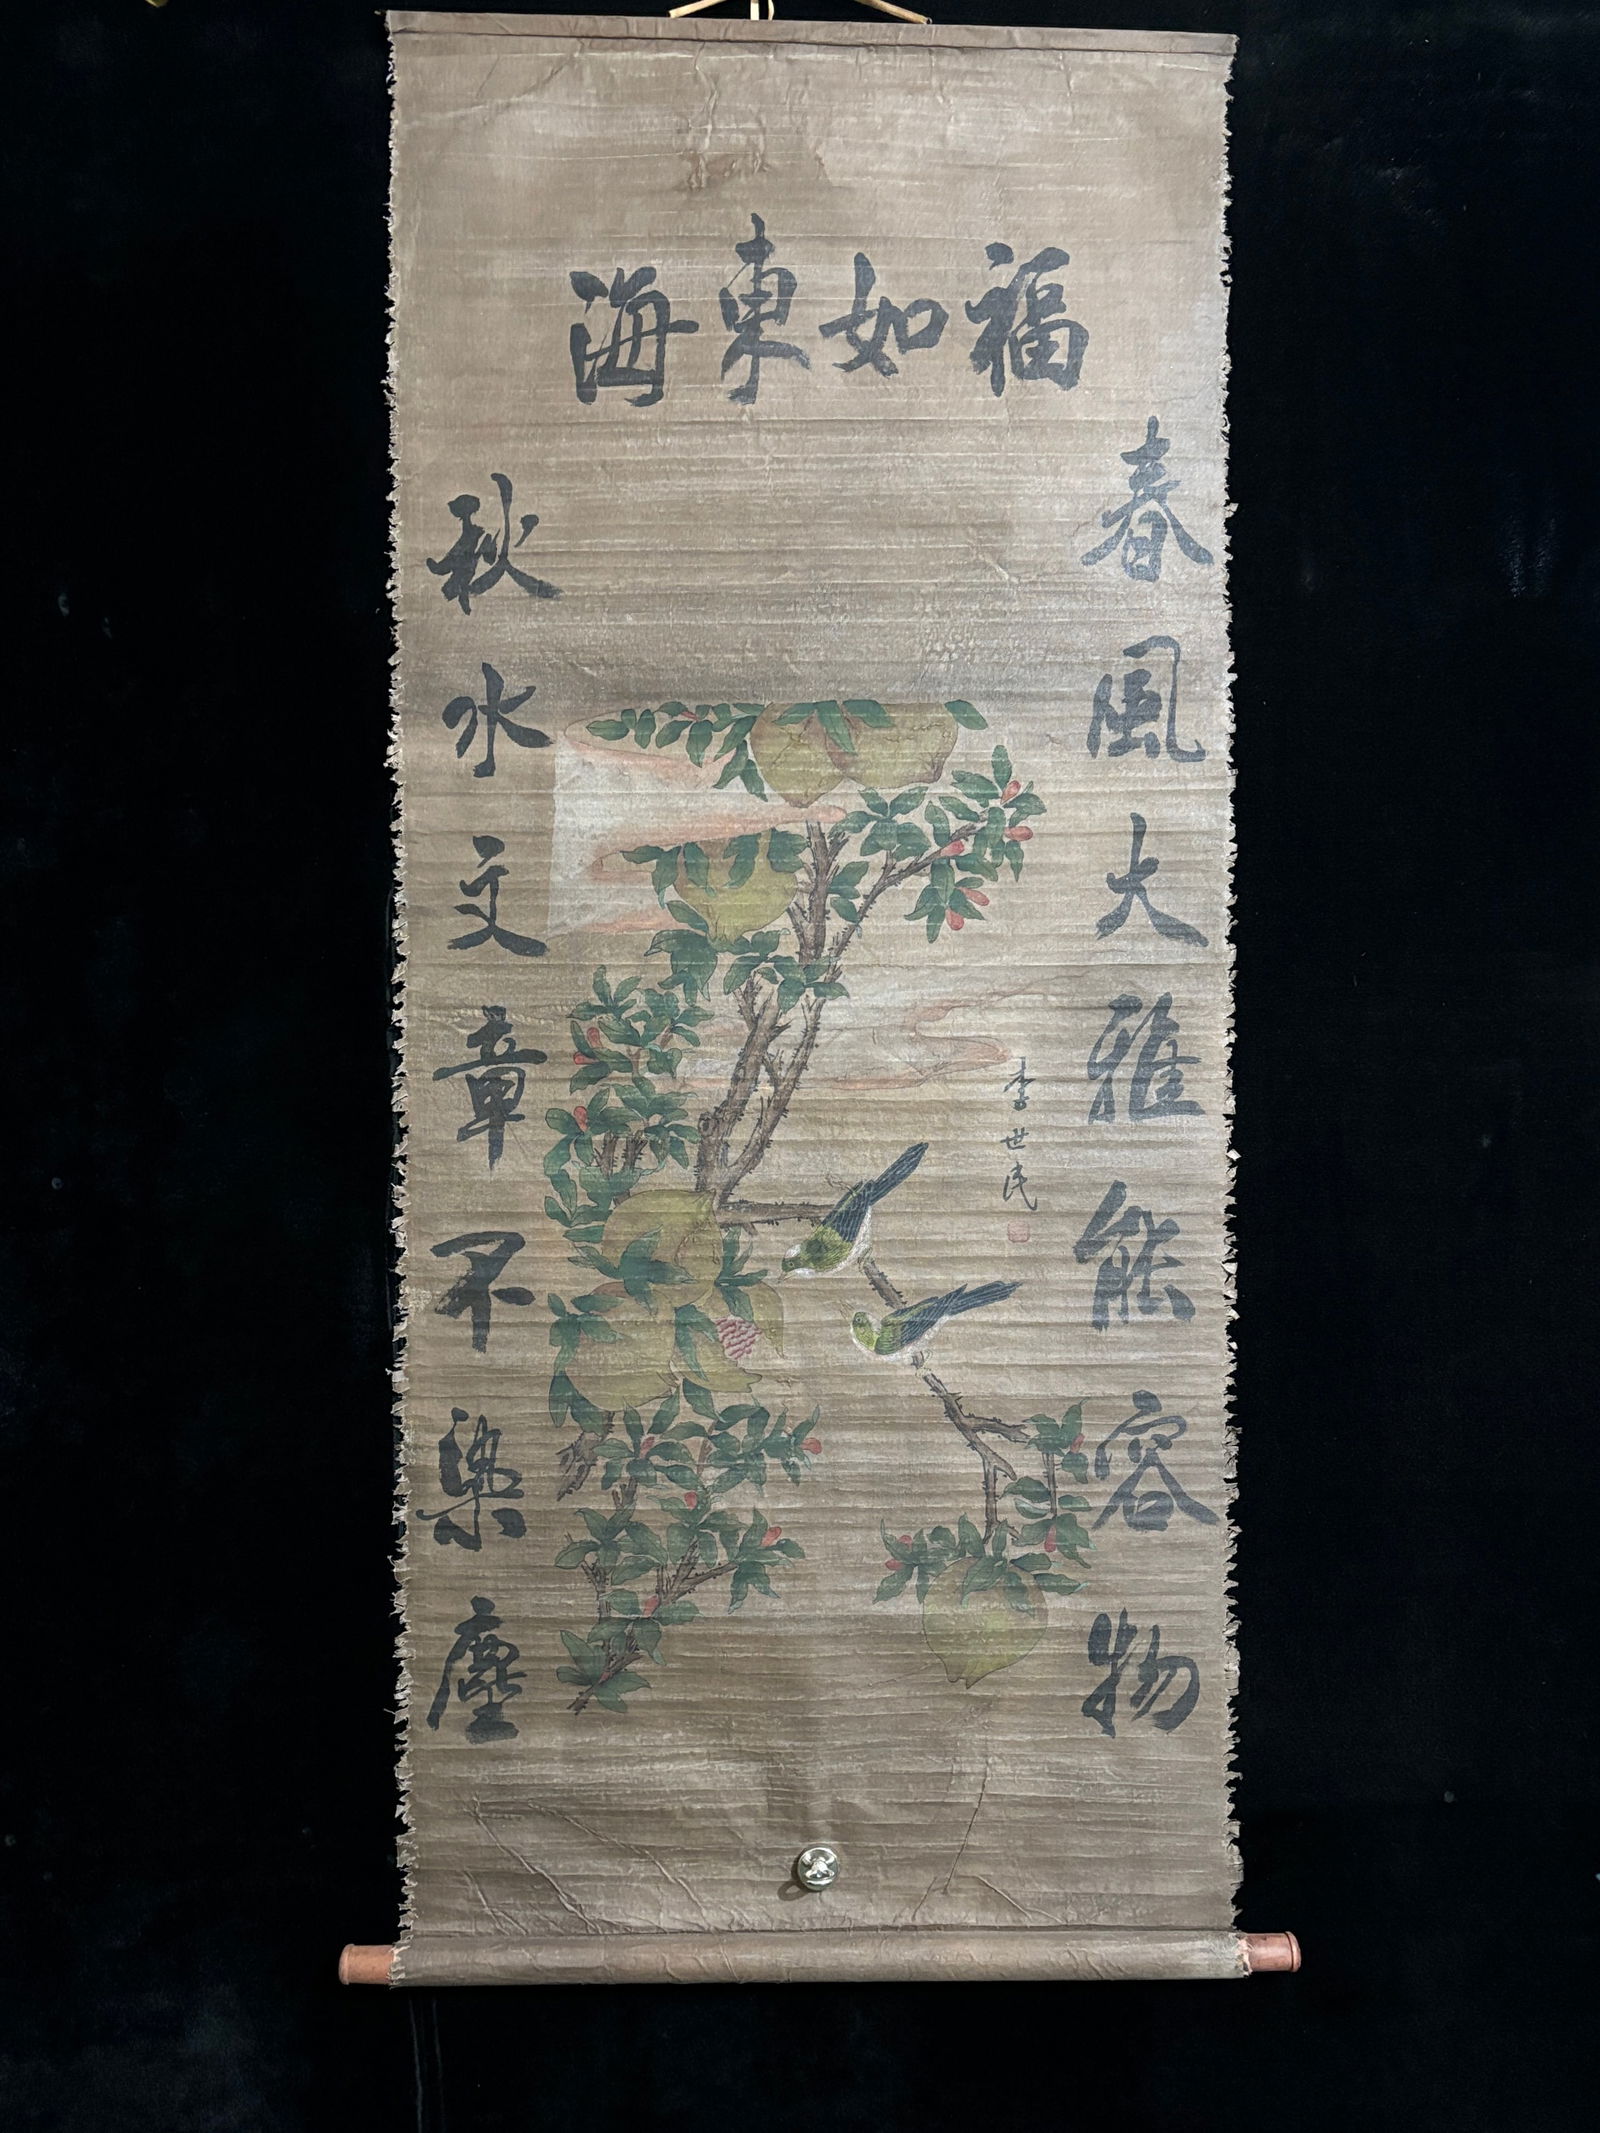 福如東海
春風大雅能容物
秋水文章不染塵
李世民